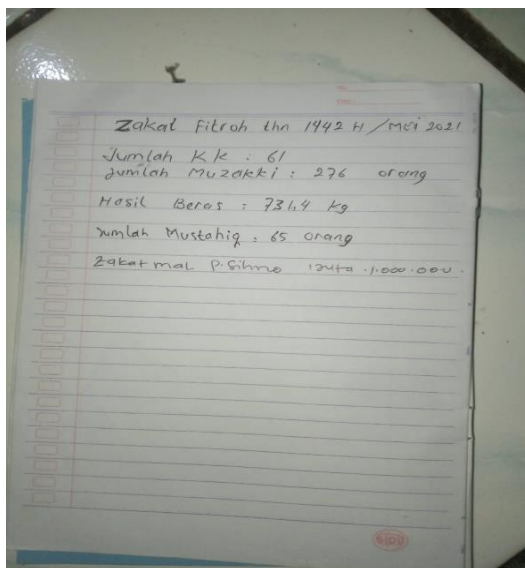 Zakat Fitroh thn 1442 H / Mei 2021
Jumlah KK : 61
Jumlah Muzakki : 276 orang
Hasil Beras : 731,4 kg
Jumlah Mustahiq : 65 orang
Zakat mal P. 1 juta . 1.000.000.